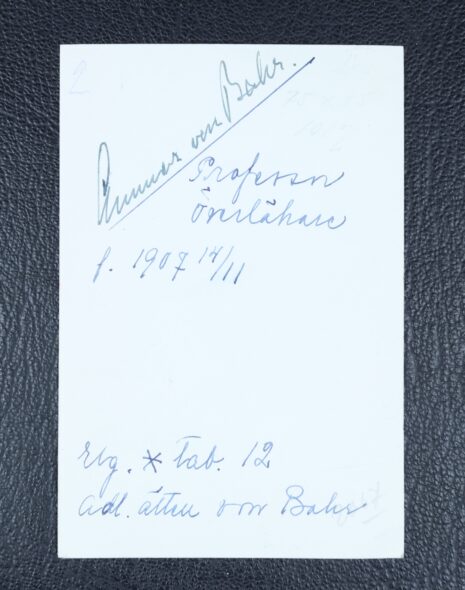 2
Gunnar von Bahr.
Professor
Överläkare
f. 1907 14/11
Elg. * tab. 12
Adl. ätten von Bahr